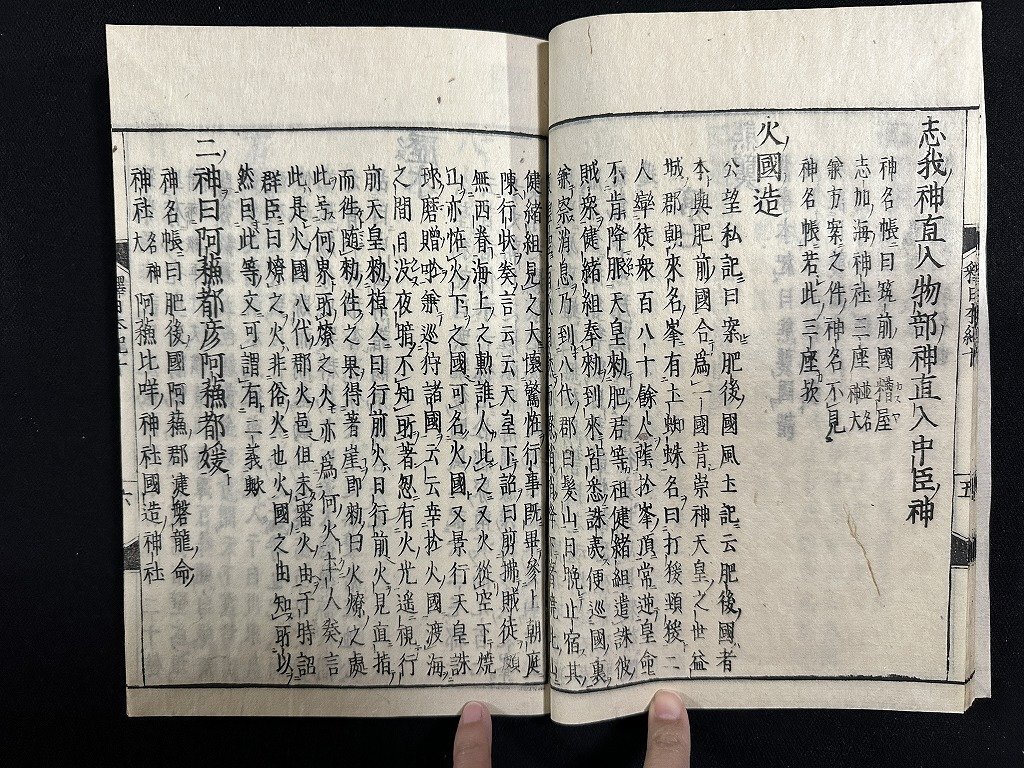 志我神直入物部神直入中臣神
神名帳曰筑前國糟屋
志加海神社三座並名神大
兼方案之件神名不見
神名帳若此三座歟
火國造
公望私記曰案肥後國風土記云肥後國者
本與肥前國合爲一國昔崇神天皇之世益
城郡朝來名峯有土蜘蛛名曰打猨頸猨二
人率徒衆百八十餘人蔭於峯頂常逆皇命
不肯降服天皇勅肥君等祖健緒組遣誅彼
賊衆健緒組奉勅到來皆悉誅夷便巡國裏
兼察消息乃到八代郡白髮山日晚止宿其
健緒組見之大懷驚恠行事既畢參上朝庭
陳行狀奏言云云天皇下詔曰剪拂賊徒頗
無西眷海上之勲誰人比之又火從空下燒
山亦恠火下之國可名火國又景行天皇誅
球磨贈唹兼巡狩諸國云云幸於火國渡海
之間日沒夜暗不知所著忽有火光遙視行
前天皇勅棹人曰行前火見直指
而往隨勅往之果得著崖即勅曰火燎之處
此号何界所燎之火亦爲何火土人奏言
此是火國八代郡火邑但未審火由于時詔
群臣曰燎之火非俗火也火國之由知所以
然曰此等文可謂有二義歟
二神曰阿蘓都彦阿蘓都媛
神名帳曰肥後國阿蘓郡健磐龍命
神社名神大阿蘓比咩神社國造神社
五
六